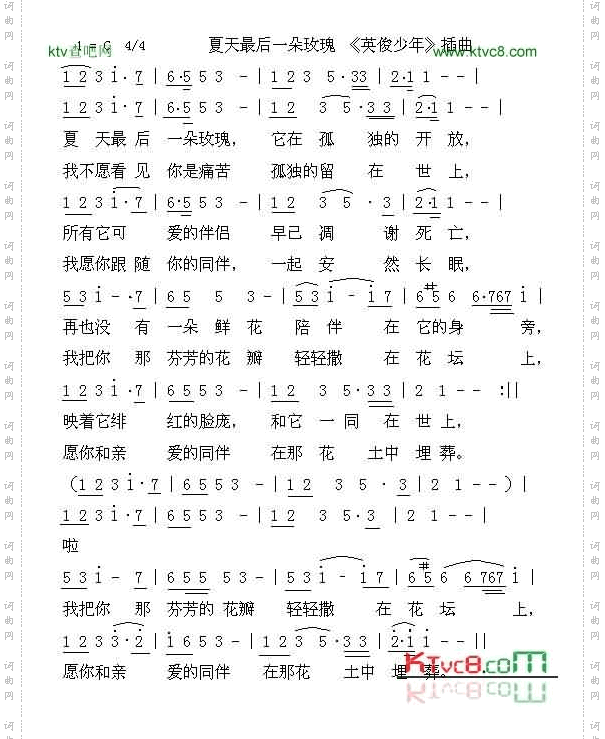 ktv音吧网 1 = C 4/4 夏天最后一朵玫瑰 《英俊少年》插曲 www.ktvc8.com
1 2 3 i · 7 | 6·5 5 3 – | 1 2 3 5 · 3 3 | 2·1 1 – – |
1 2 3 i · 7 | 6·5 5 3 – | 1 2 3 5 · 3 3 | 2·1 1 – – |
夏 天最 后 一朵玫瑰， 它在 孤 独的 开 放，
我不愿看 见 你是痛苦 孤独的留 在 世 上，
1 2 3 i · 7 | 6·5 5 3 – | 1 2 3 5 · 3 | 2·1 1 – – |
所有它可 爱的伴侣 早已 凋 谢 死 亡，
我愿你跟 随 你的同伴， 一起 安 然 长 眠，
5 3 i – · 7 | 6 5 5 3 – | 5 3 i – i 7 | #6 5 6 6·767 i |
再也没 有 一朵 鲜 花 陪 伴 在 它的身 旁，
我把你 那 芬芳的花 瓣 轻轻撒 在 花 坛 上，
1 2 3 i · 7 | 6·5 5 3 – | 1 2 3 5 · 3 3 | 2·1 1 – – :||
映着它绯 红的脸庞， 和它 一 同 在 世 上，
愿你和亲 爱的同伴 在那 花 土中 埋 葬。
（1 2 3 i · 7 | 6 5 5 3 – | 1 2 3 5 · 3 | 2 1 – – ）|
1 2 3 i · 7 | 6 5 5 3 – | 1 2 3 5 · 3 | 2 1 – – |
啦
5 3 i – 7 | 6 5 5 5 3 – | 5 3 i – i 7 | #6 5 6 6 767 i |
我把你 那 芬芳的 花瓣 轻轻撒 在 花 坛 上，
1 2 3 3 · 2 | i 7 6 5 3 – | 1 2 3 5 · 3 3 | 2·1 i – – ||
KTvc8.com
愿你和亲 爱的同伴 在那花 土中 埋 葬。
词曲网
词曲网
词曲网
词曲网
词曲网
词曲网
词曲网
词曲网